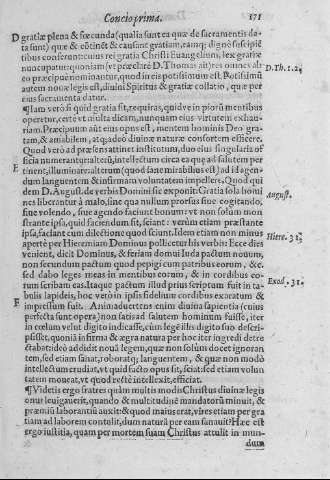 Concio prima. 171
D gratiæ plena & fœcunda (qualia sunt ea quæ de sacramentis da
ta sunt) quæ & cōtinēt & causant gratiam, eamq; dignè suscipiē
tibus conferunt: cuius rei gratia Christi Euangelium, lex gratiæ
nuncupatur: quoniam (vt præclarè D. Thomas ait) res omnes ab
eo præcipuè nominantur, quod in eis potissimum est. Potissimū D. Th. 1. 2.
autem nouæ legis est, diuini Spiritus & gratiæ collatio, quæ per
eius sacramenta datur.
¶Iam verò si quid gratia sit, requiras, quid ve in piorū mentibus
operetur, certè vt multa dicam, nunquam eius virtutem exhau-
riam. Præcipuum aūt eius opus est, mentem hominis Deo gra-
tam, & amabilem, atq; adeò diuinæ naturæ consortem efficere.
Quod verò ad præsens attinet institutum, duo eius singularia of
ficia numerantur: alterū, intellectum circa ea quæ ad salutem per
E tinent, illuminare: alterum (quod sanè mirabilius est) ad id agen-
dum languentem & infirmam voluntatem impellere. Quod qui
dem D. August. de verbis Domini sic exponit: Gratia sola homi August.
nes liberantur à malo, sine qua nullum prorsus siue cogitando,
siue volendo, siue agendo faciunt bonum: vt non solum mon
strante ipsa, quid faciendum sit, sciant: verùm etiam præstante
ipsa, faciant cum dilectione quod sciunt. Idem etiam non minus
apertè per Hieremiam Dominus pollicetur his verbis: Ecce dies Hiere. 31.
venient, dicit Dominus, & feriam domui Iuda pactum nouum,
non secundum pactum quod pepigi cum patribus eorum, &c.
sed dabo leges meas in mentibus eorum, & in cordibus eo-
rum scribam eas. Itaque pactum illud prius scriptum fuit in ta- Exod. 31.
bulis lapideis, hoc verò in ipsis fidelium cordibus exaratum &
F impressum fuit. Animaduertens enim diuina sapientia (cuius
perfecta sunt opera) non satis ad salutem hominum fuisse, iter
in cœlum velut digito indicasse, cùm legē illis digito suo descri-
psisset, quoniā infirma & ægra natura per hoc iter ingredi detre
ctabat: ideò addidit nouā legem, quæ non solùm docet ignoran
tem, sed etiam sanat, roboratq; languentem, & quæ non modò
intellectum erudiat, vt quid facto opus sit, sciat: sed etiam volun
tatem moueat, vt quod rectè intellexit, efficiat.
¶Videtis ergo fratres quàm multis modis Christus diuinæ legis
onus leuigauerit, quando & multitudinē mandatorū minuit, &
præmiū laborantiū auxit: & quod maius erat, vires etiam per gra
tiam ad laborem contulit, dum natura per eam sanauit? Hæc est
ergo iustitia, quam per mortem suam Christus attulit in mun-
dum